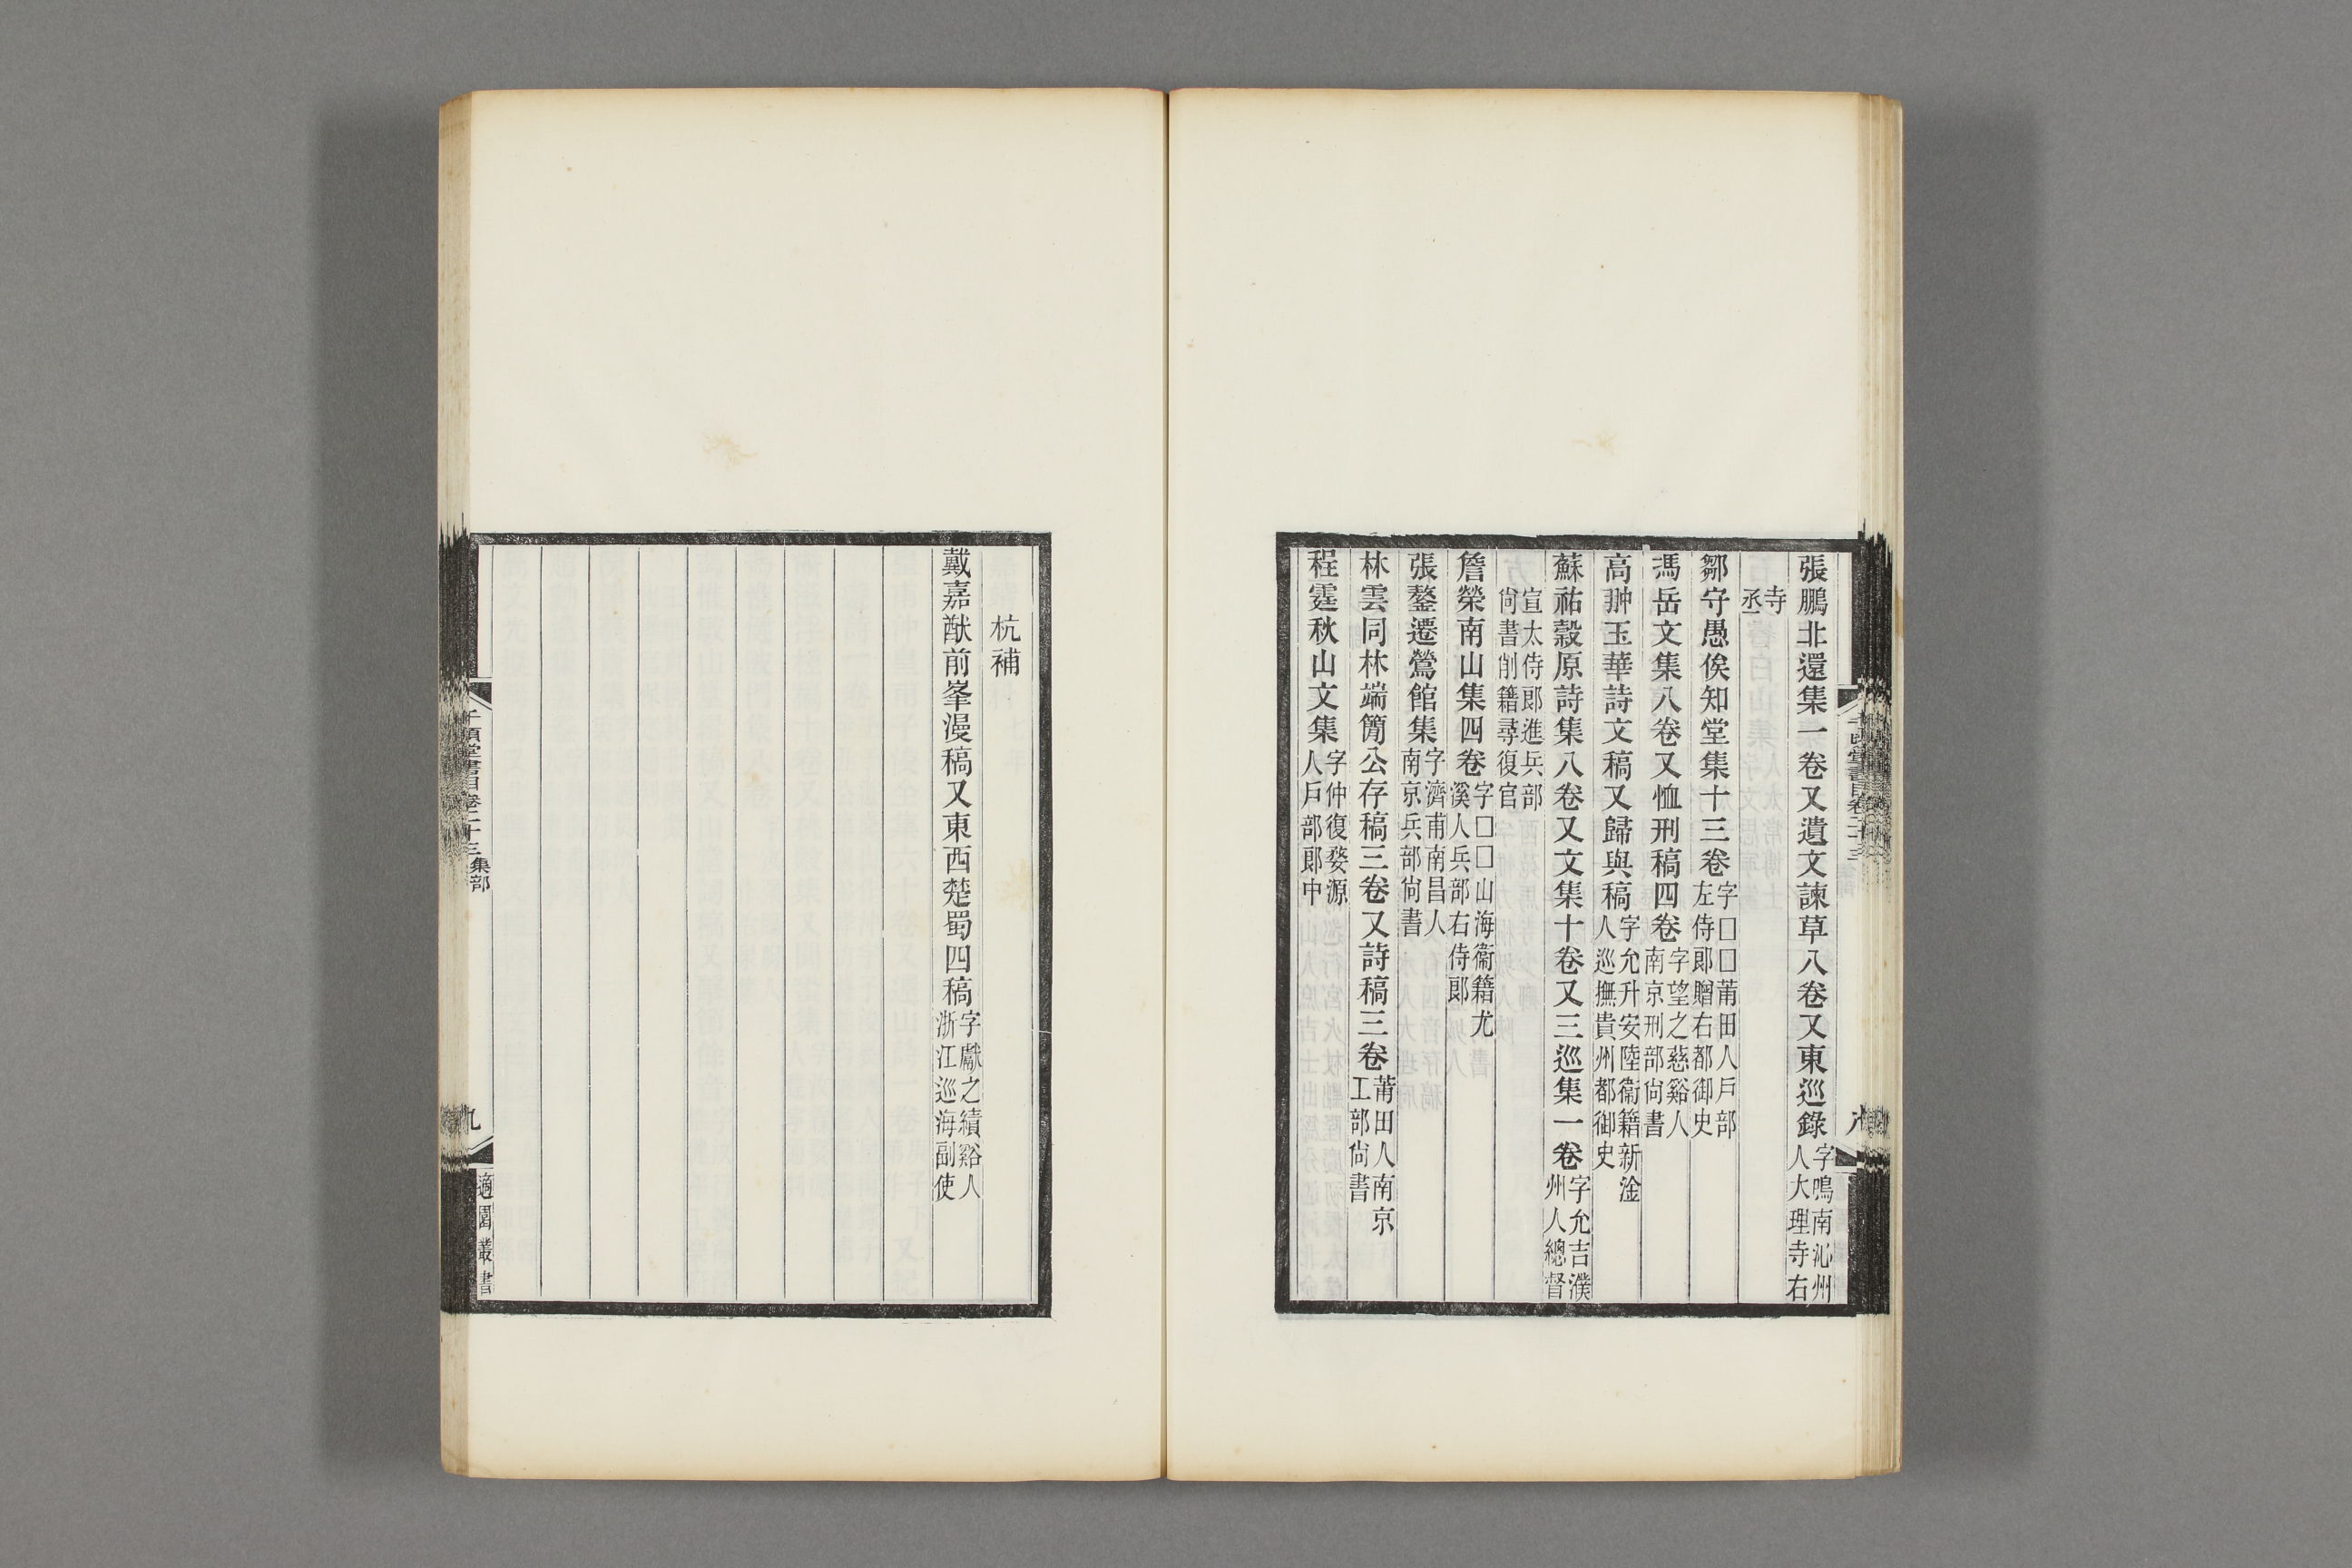 張鵬北還集一卷又遺文諫草八卷又東巡錄字鳴南沁州人大理寺右
寺丞
鄒守愚俟知堂集十三卷字□□莆田人戶部左侍郞贈右都御史
馮岳文集八卷又恤刑稿四卷字望之慈谿人南京刑部尙書
高翀玉華詩文稿又歸與稿字允升安陸衞籍新淦人巡撫貴州都御史
蘇祐穀原詩集八卷又文集十卷又三巡集一卷字允吉濮州人總督
宣太侍郞進兵部尙書削籍尋復官
詹榮南山集四卷字□□山海衞籍尤溪人兵部右侍郞
張鏊遷鶯館集字濟甫南昌人南京兵部尙書
林雲同林端簡公存稿三卷又詩稿三卷莆田人南京工部尙書
程霆秋山文集字仲復婺源人戶部郞中
杭補
戴嘉猷前峯漫稿又東西楚蜀四稿字獻之績谿人浙江巡海副使
千頃堂書目卷二十三集部
九
適園叢書